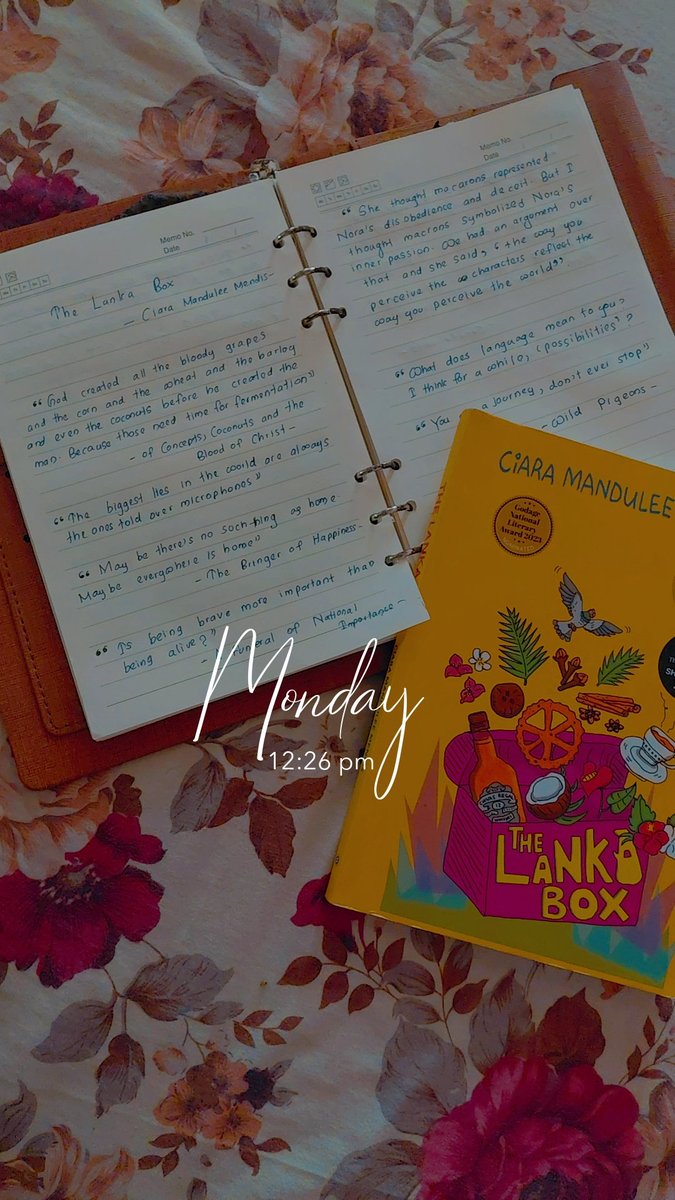 Memo No.
Date
The Lanka Box
- Ciara Mandulee Mendis -
"God created all the bloody grapes
and the corn and the wheat and the barley
and even the coconuts before he created the
man. Because those need time for fermentation"
- Of Concepts, Coconuts and the
Blood of Christ -
"The biggest lies in the world are always
the ones told over microphones"
"May be there's no such thing as home.
Maybe everywhere is home"
- The Bringer of Happiness -
"Is being brave more important than
being alive?"
- A Funeral of National
Importance -
Memo No.
Date
"She thought macarons represented
Nora's disobedience and deceit. But I
thought macrons symbolized Nora's
inner passion. We had an argument over
that and she said, "the way you
perceive the characters reflect the
way you perceive the world""
"What does language mean to you?
I think for a while, 'possibilities'?
"You a journey, don't ever stop"
- Wild Pigeons -
CIARA MANDULEE
Godage
National
Literary
Award 2023
SH
THE
LANKA
BOX
Monday
12:26 pm